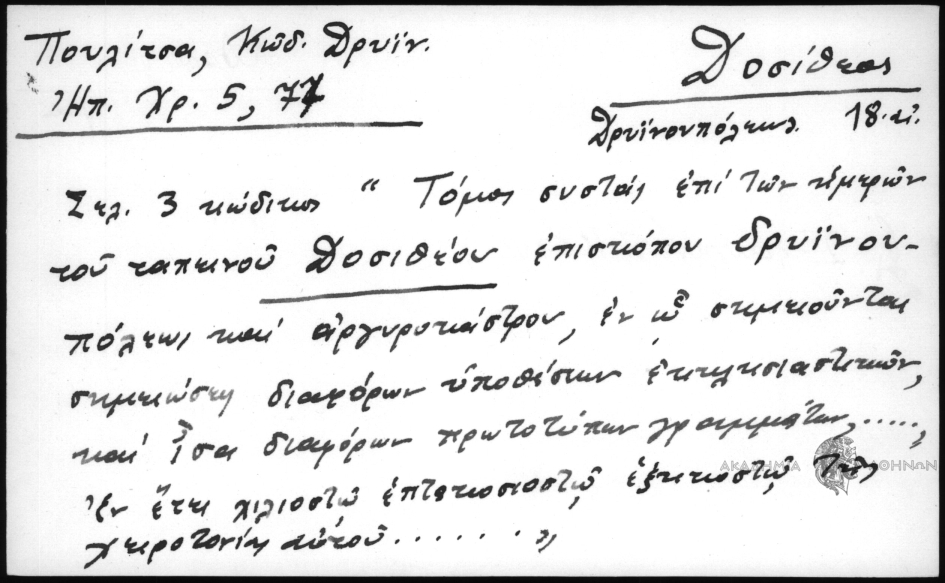 Πουλίτσα, Κώδ. Δρυϊν.
Ἠπ. Χρ. 5, 77
Δοσίθεος
Δρυϊνουπόλεως. 18. αἰ.
Σελ. 3 κώδικος " Τόμος συστὰς ἐπὶ τῶν ἡμερῶν
τοῦ ταπεινοῦ Δοσιθέου ἐπισκόπου δρυϊνου-
πόλεως καὶ ἀργυροκάστρου, ἐν ᾧ σημειοῦνται
σημειώσεις διαφόρων ὑποθέσεων ἐκκλησιαστικῶν,
καὶ ἶσα διαφόρων πρωτοτύπων γραμμάτων, .....,
Ἐν ἔτει χιλιοστῷ ἑπτακοσιοστῷ ἑξηκοστῷ τῆς
χειροτονίας αὐτοῦ ....... "
ΑΚΑΔΗΜΙΑ ΑΘΗΝΩΝ